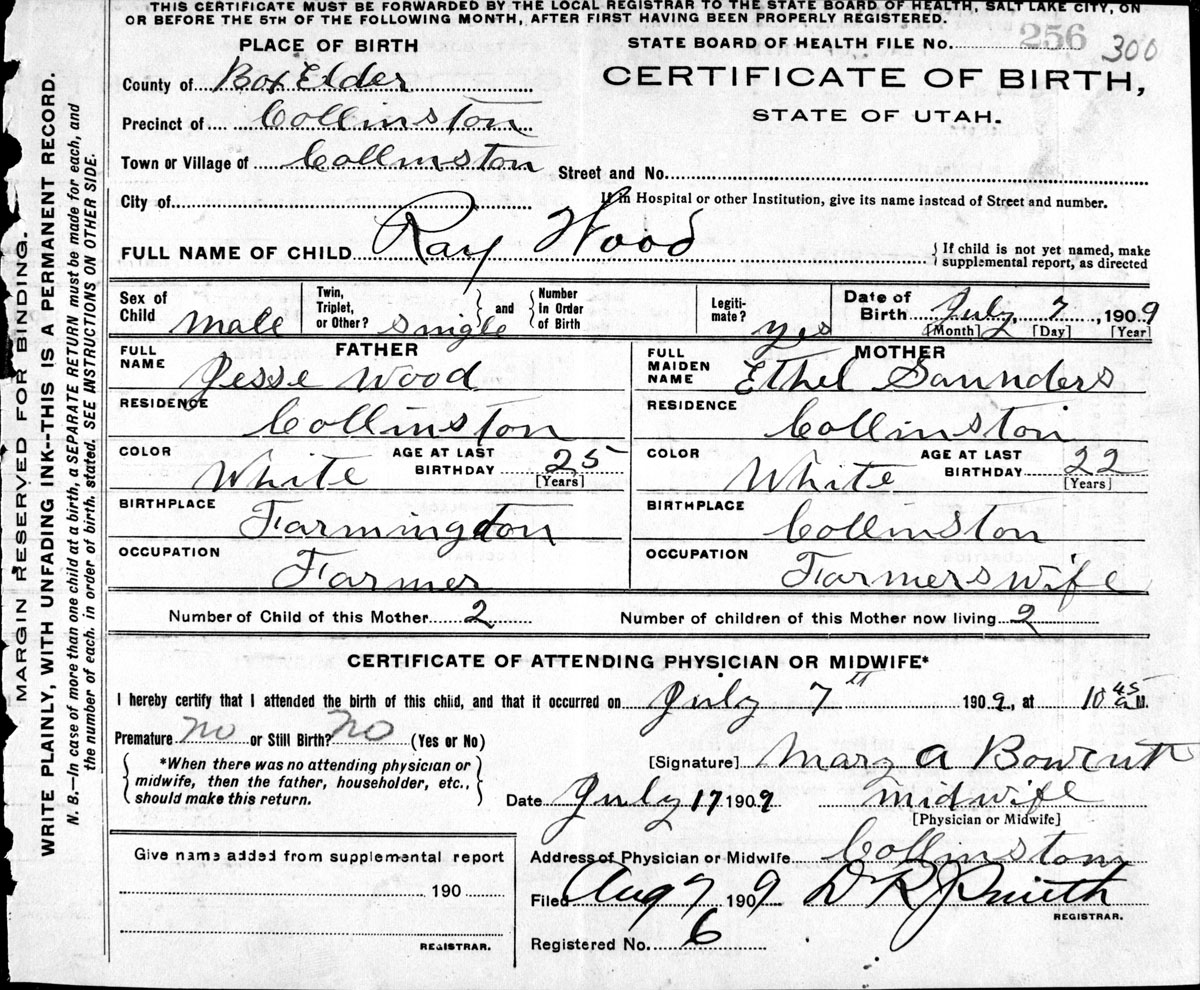 THIS CERTIFICATE MUST BE FORWARDED BY THE LOCAL REGISTRAR TO THE STATE BOARD OF HEALTH, SALT LAKE CITY, ON
OR BEFORE THE 5TH OF THE FOLLOWING MONTH, AFTER FIRST HAVING BEEN PROPERLY REGISTERED.
PLACE OF BIRTH
STATE BOARD OF HEALTH FILE No. 256 300
County of Box Elder
CERTIFICATE OF BIRTH,
Precinct of Collinston
STATE OF UTAH.
Town or Village of Collinston
Street and No.
City of
If in Hospital or other Institution, give its name instead of Street and number.
FULL NAME OF CHILD Ray Wood
If child is not yet named, make
supplemental report, as directed
Sex of
Child male
Twin,
Triplet,
or Other? single
and
Number
In Order
of Birth
Legiti-
mate? yes
Date of
Birth July 7, 1909
[Month] [Day] [Year]
FATHER
FULL
NAME Jesse Wood
RESIDENCE
Collinston
COLOR White AGE AT LAST
BIRTHDAY 25
[Years]
BIRTHPLACE
Farmington
OCCUPATION
Farmer
MOTHER
FULL
MAIDEN
NAME Ethel Saunders
RESIDENCE
Collinston
COLOR White AGE AT LAST
BIRTHDAY 22
[Years]
BIRTHPLACE
Collinston
OCCUPATION
Farmers wife
Number of Child of this Mother 2 Number of children of this Mother now living 2
CERTIFICATE OF ATTENDING PHYSICIAN OR MIDWIFE*
I hereby certify that I attended the birth of this child, and that it occurred on July 7th 1909, at 10 45 a M.
Premature no or Still Birth? NO (Yes or No)
*When there was no attending physician or
midwife, then the father, householder, etc.,
should make this return.
[Signature] Mary A
Date July 17 1909 midwife
[Physician or Midwife]
Give name added from supplemental report
190
REGISTRAR.
Address of Physician or Midwife Collinston
Filed Aug 9 1909 Smith
REGISTRAR.
Registered No. 6
MARGIN RESERVED FOR BINDING.
WRITE PLAINLY, WITH UNFADING INK--THIS IS A PERMANENT RECORD.
N. B.—In case of more than one child at a birth, a SEPARATE RETURN must be made for each, and
the number of each, in order of birth, stated. SEE INSTRUCTIONS ON OTHER SIDE.